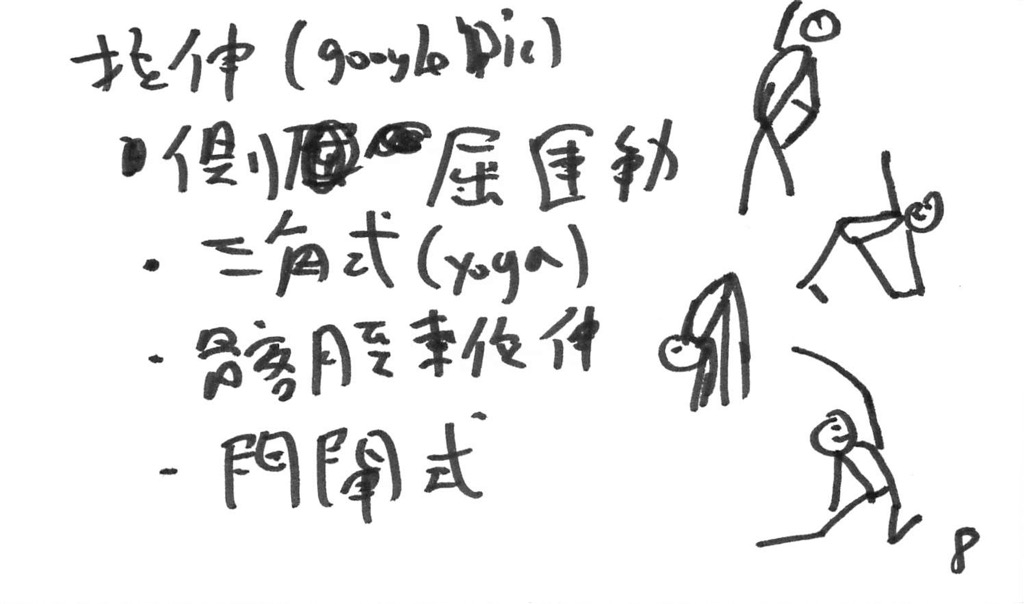 拉伸 (google pic)
側屈運動
· 三角式 (yoga)
· 髂脛束拉伸
- 門閂式
8